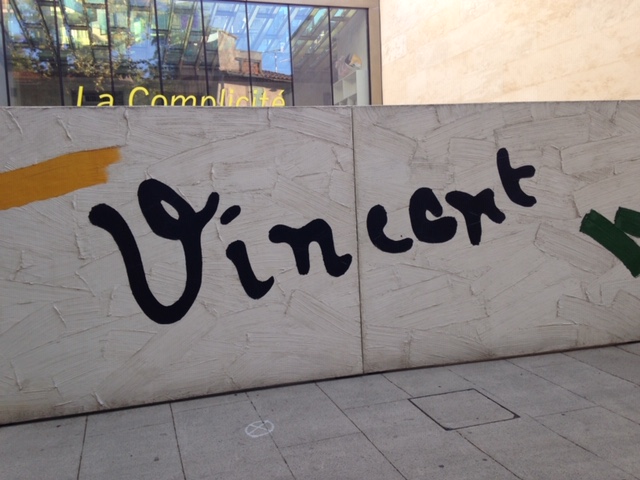 La Complicité
Vincent